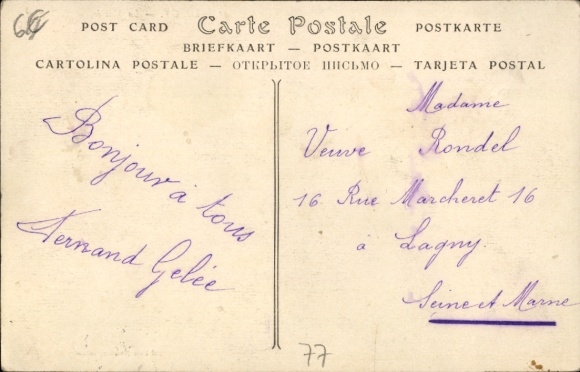 69
POST CARD Carte Postale POSTKARTE
BRIEFKAART — POSTKAART
CARTOLINA POSTALE — ОТКРЫТОЕ ПИСЬМО — TARJETA POSTAL
Bonjour à tous
Fernand Gelée
Madame
Veuve Rondel
16 Rue Marcheret 16
à Lagny.
Seine et Marne
77